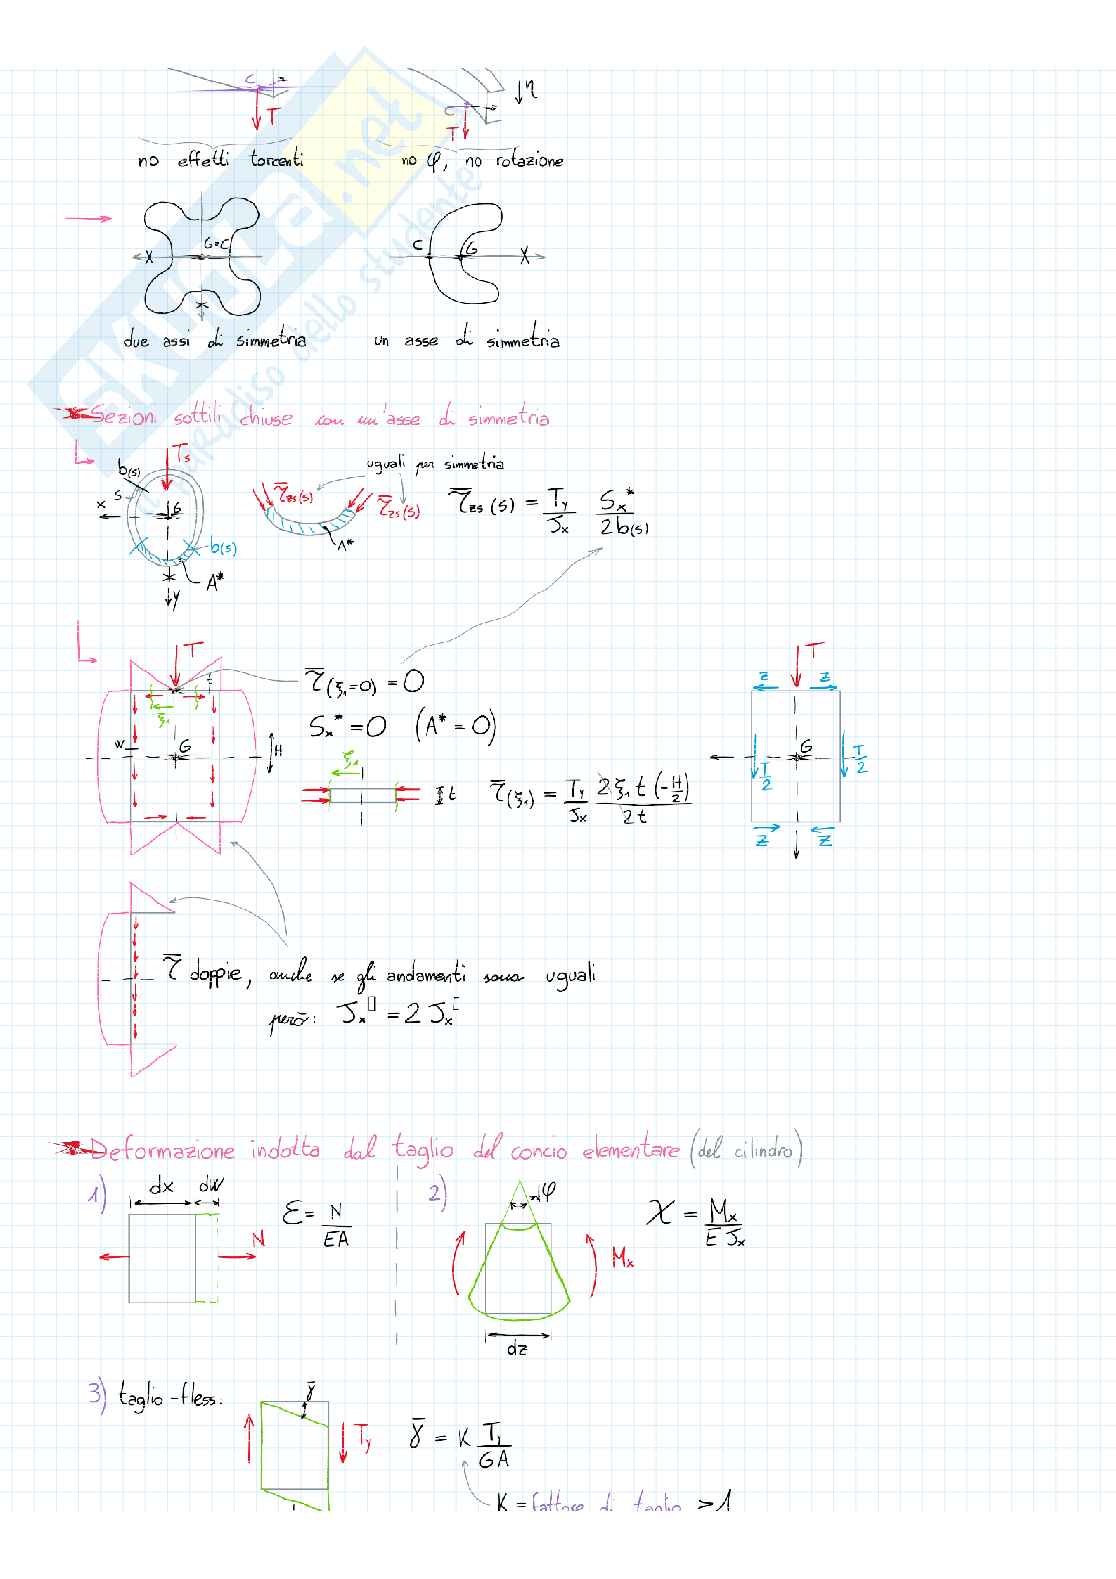 C
T
no effetti torcenti
C
T
η
no φ, no rotazione
G=C
X
due assi di simmetria
C
G
X
un asse di simmetria
SKUOLA.net
paradiso dello studente
Sezioni sottili chiuse con un'asse di simmetria
Ts
b(s)
s
x
G
b(s)
A*
y
uguali per simmetria
τ̅zs(s)
τ̅zs(s)
A*
τ̅zs(s) = Ty/Jx Sx*/2b(s)
T
t
ξ1
w
G
H
τ̅(ξ1=0) = 0
Sx* = 0 (A* = 0)
ξ1
t
τ̅(ξ1) = Ty/Jx 2ξ1 t (-H/2)/2t
T
Z
Z
G
T/2
T/2
Z
Z
τ̅ doppie, anche se gli andamenti sono uguali
però: Jx▯ = 2 Jx[
Deformazione indotta dal taglio del concio elementare (del cilindro)
1)
dx
dw
N
ε = N/EA
2)
dφ
Mx
dz
χ = Mx/E Jx
3) taglio-fless.
γ̅
Ty
γ̅ = K Ty/GA
K = fattore di taglio > 1